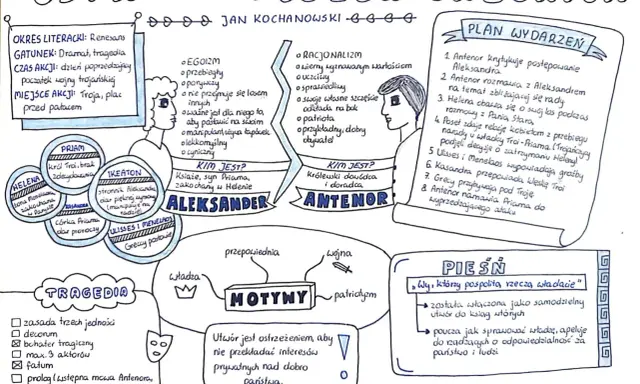 JAN KOCHANOWSKI
OKRES LITERACKI: Renesans
GATUNEK: Dramat, tragedia
CZAS AKCJI: dzień poprzedzający
początek wojny trojańskiej
MIEJSCE AKCJI: Troja, plac
przed pałacem
EGOIZM
przebiegły
porywczy
nie przejmuje się losem
innych
ważne jest dla niego to,
aby postawić na swoim
lekkomyślny
cyniczny
KIM JEST?
Książę, syn Priama,
zakochany w Helenie
ALEKSANDER
RACJONALIZM
wierny wyznawanym wartościom
uczciwy
sprawiedliwy
swoje własne szczęście
odkłada na bok
patriota
przykładny, dobry
obywatel
KIM JEST?
królewski dowódca
i doradca
ANTENOR
PLAN WYDARZEŃ
1. Antenor krytykuje postępowanie
Aleksandra
2. Antenor rozmawia z Aleksandrem
na temat zbliżającej się rady
3. Helena obawia się o swój los podczas
rozmowy z Panią Starą
4. Poseł zdaje relację kobietom z przebiegu
narady u władcy Troi - Priama (Trojańczycy
podjęli decyzję o zatrzymaniu Heleny)
5. Ulisses i Menelaos wypowiadają groźby
6. Kasandra przepowiada klęskę Troi
7. Grecy przybywają pod Troję
8. Antenor namawia Priama do
wyprzedzającego ataku
PRIAM
król Troi, brak
zdecydowania
HELENA
żona Menelaosa,
zakochana
w Parysie
KASANDRA
córka Priama
dar proroczy
IKETAON
stronnik Aleksandra
ULISSES I MENELAOS
Greccy posłowie
TRAGEDIA
zasada trzech jedności
decorum
bohater tragiczny
max. 3 aktorów
fatum
prolog (wstępna mowa Antenora,
przepowiednia
wojna
władza
MOTYWY
patriotyzm
Utwór jest ostrzeżeniem, aby
nie przekładać interesów
prywatnych nad dobro
państwa.
PIEŚŃ
"Wy, którzy pospolitą rzeczą władacie"
została włączona jako samodzielny
utwór do ksiąg wtórych
poucza jak sprawować władzę, apeluje
do rządzących o odpowiedzialność za
państwo i ludzi